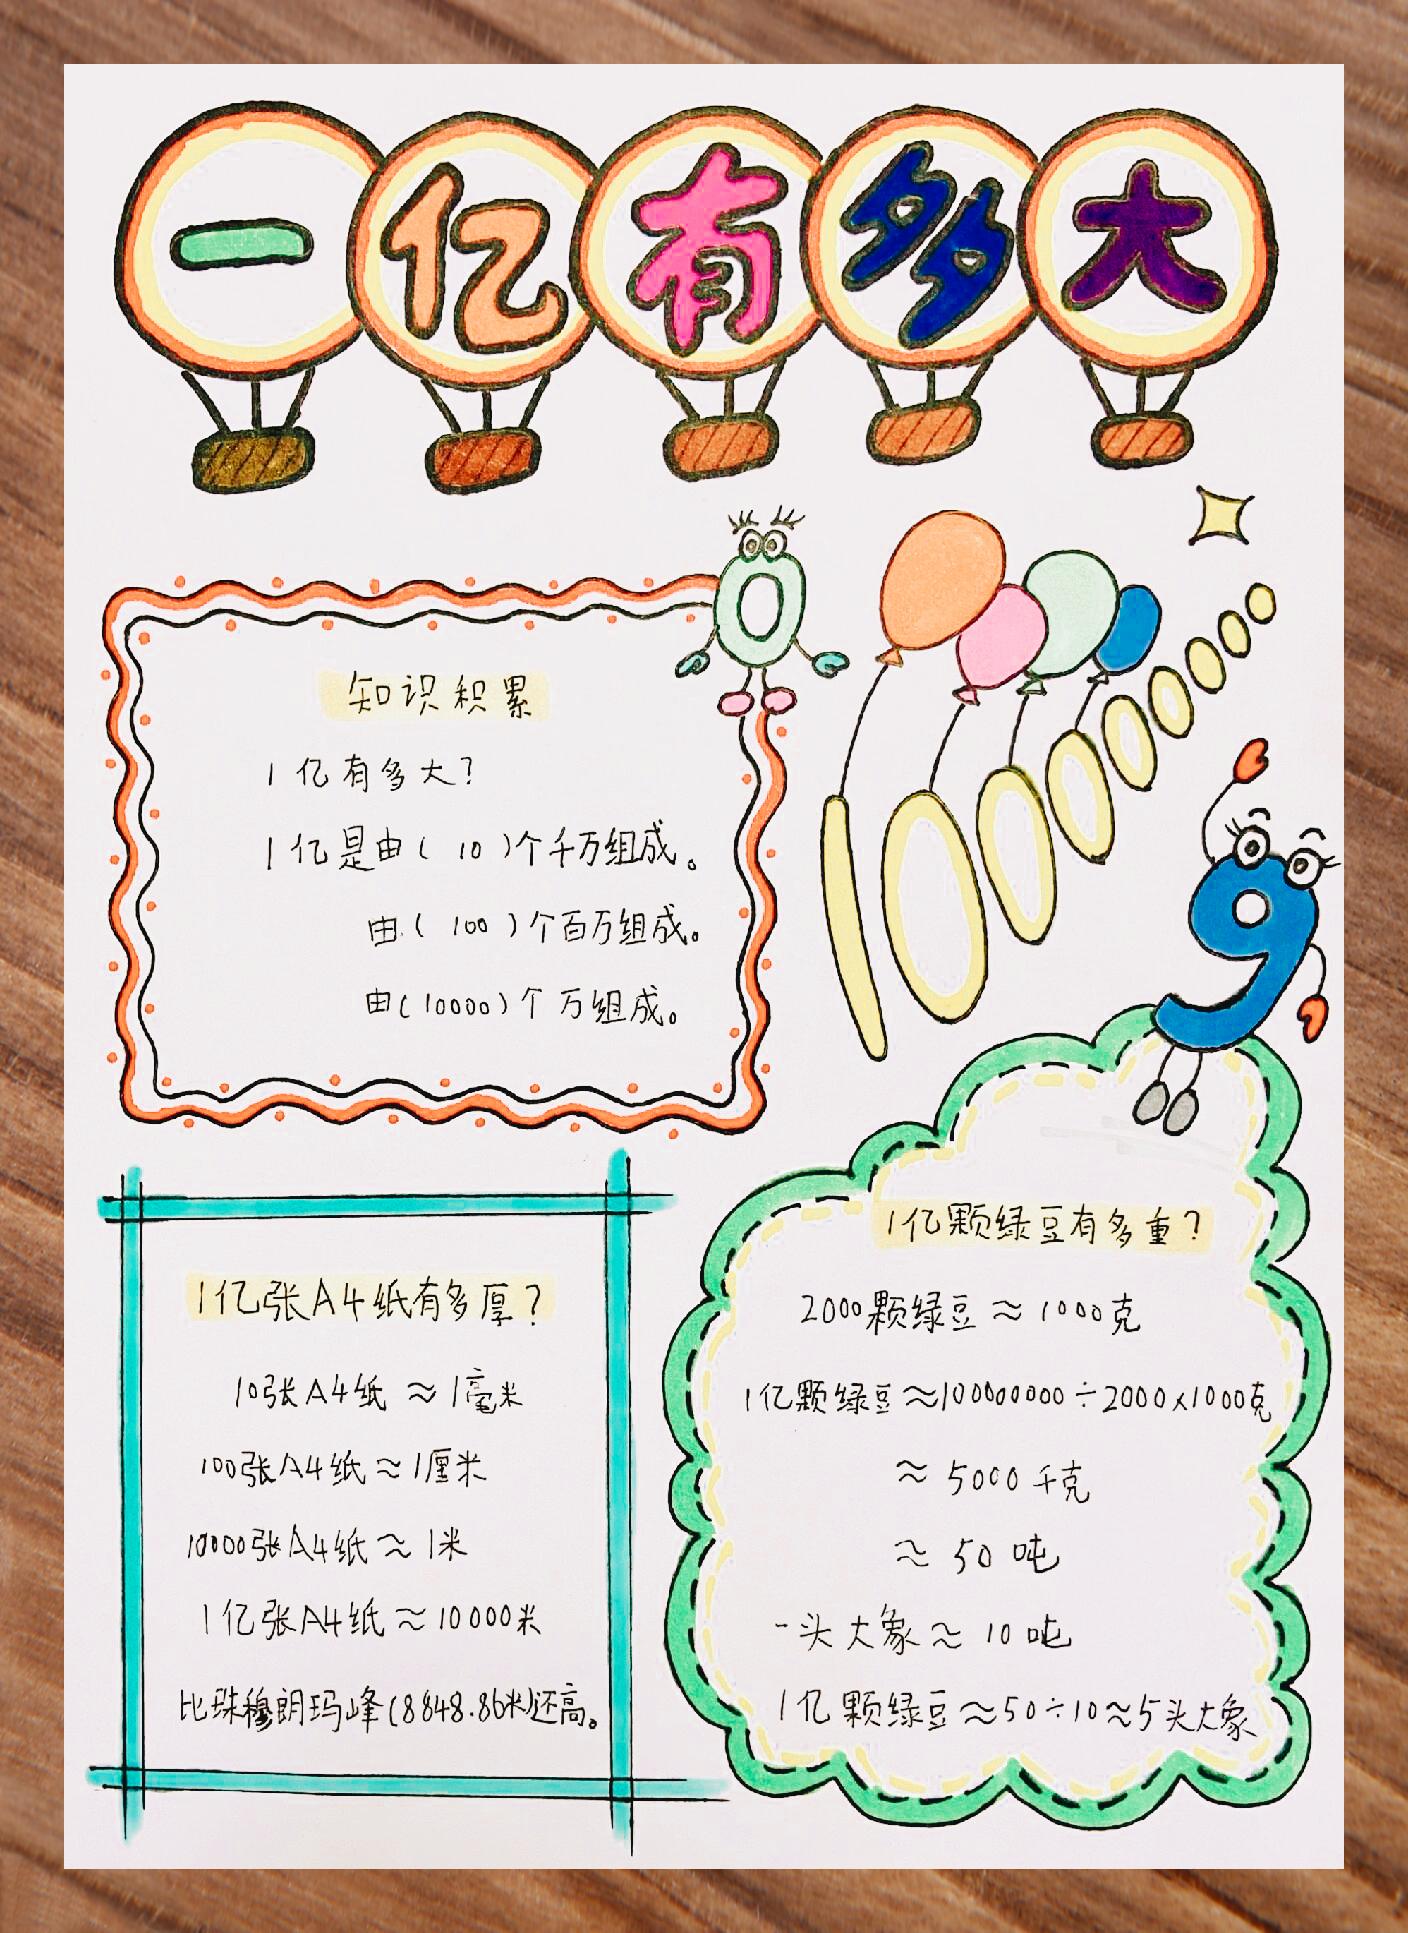 一亿有多大
知识积累
1亿有多大?
1亿是由(10)个千万组成。
由(100)个百万组成。
由(10000)个万组成。
100000000
1亿张A4纸有多厚?
10张A4纸≈1毫米
100张A4纸≈1厘米
10000张A4纸≈1米
1亿张A4纸≈10000米
比珠穆朗玛峰(8848.86米)还高。
1亿颗绿豆有多重?
2000颗绿豆≈1000克
1亿颗绿豆≈100000000÷2000×1000克
≈5000千克
≈50吨
一头大象≈10吨
1亿颗绿豆≈50÷10≈5头大象
0
9